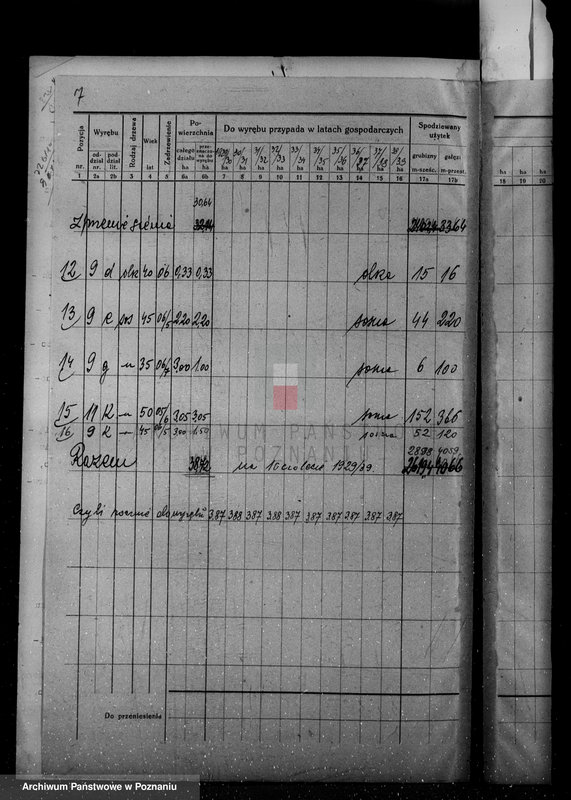 7
Pozycja Wyrębu Rodzaj drzewa Wiek Zadrzewienie Powierzchnia Do wyrębu przypada w latach gospodarczych Spodziewany użytek
oddział poddział całego działu przeznaczona do wyrębu 1929/30 30/31 31/32 32/33 33/34 34/35 35/36 36/37 37/38 38/39 grubizny gałęzi
nr. nr. lit. lat ha ha ha ha ha ha ha ha ha ha ha ha m-sześc. m-przest. ha ha ha
1 2a 2b 3 4 5 6a 6b 7 8 9 10 11 12 13 14 15 16 17a 17b 18 19 20
30,64
Z przeniesienia 3364
12 9 d olk 40 06 0,33 0,33 olka 15 16
13 9 e sos 45 06/5 2,20 2,20 sosna 44 220
14 9 g " 35 06/7 3,00 1,00 sosna 6 100
15 11 k " 50 05/6 3,05 3,05 sosna 152 366
16 9 k 45 06/5 3,00 1,50 sosna 52 120
2893 4059
Razem 38,72 na 10 ciolecie 1929/39
Czyli rocznie do wyrębu 3,87 3,88 3,87 3,88 3,87 3,87 3,87 3,87 3,87 3,87
Do przeniesienia
ARCHIWUM PAŃSTWOWE
POZNAŃ
Archiwum Państwowe w Poznaniu